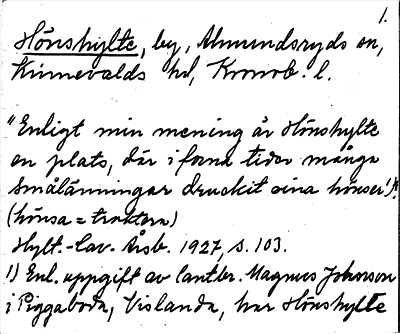 1.
Hönshylte, by, Almundsryds sn,
Kinnevalds hd, Kronob. l.
"Enligt min mening är Hönshylte
en plats, där i forna tider många
smålänningar druckit sina hönser¹)."
(hönsa = traktera)
Hylt.-Cav. Årsb. 1927, s. 103.
1) Enl. uppgift av lantbr. Magnus Johansson
i Piggaboda, Vislanda, har Hönshylte